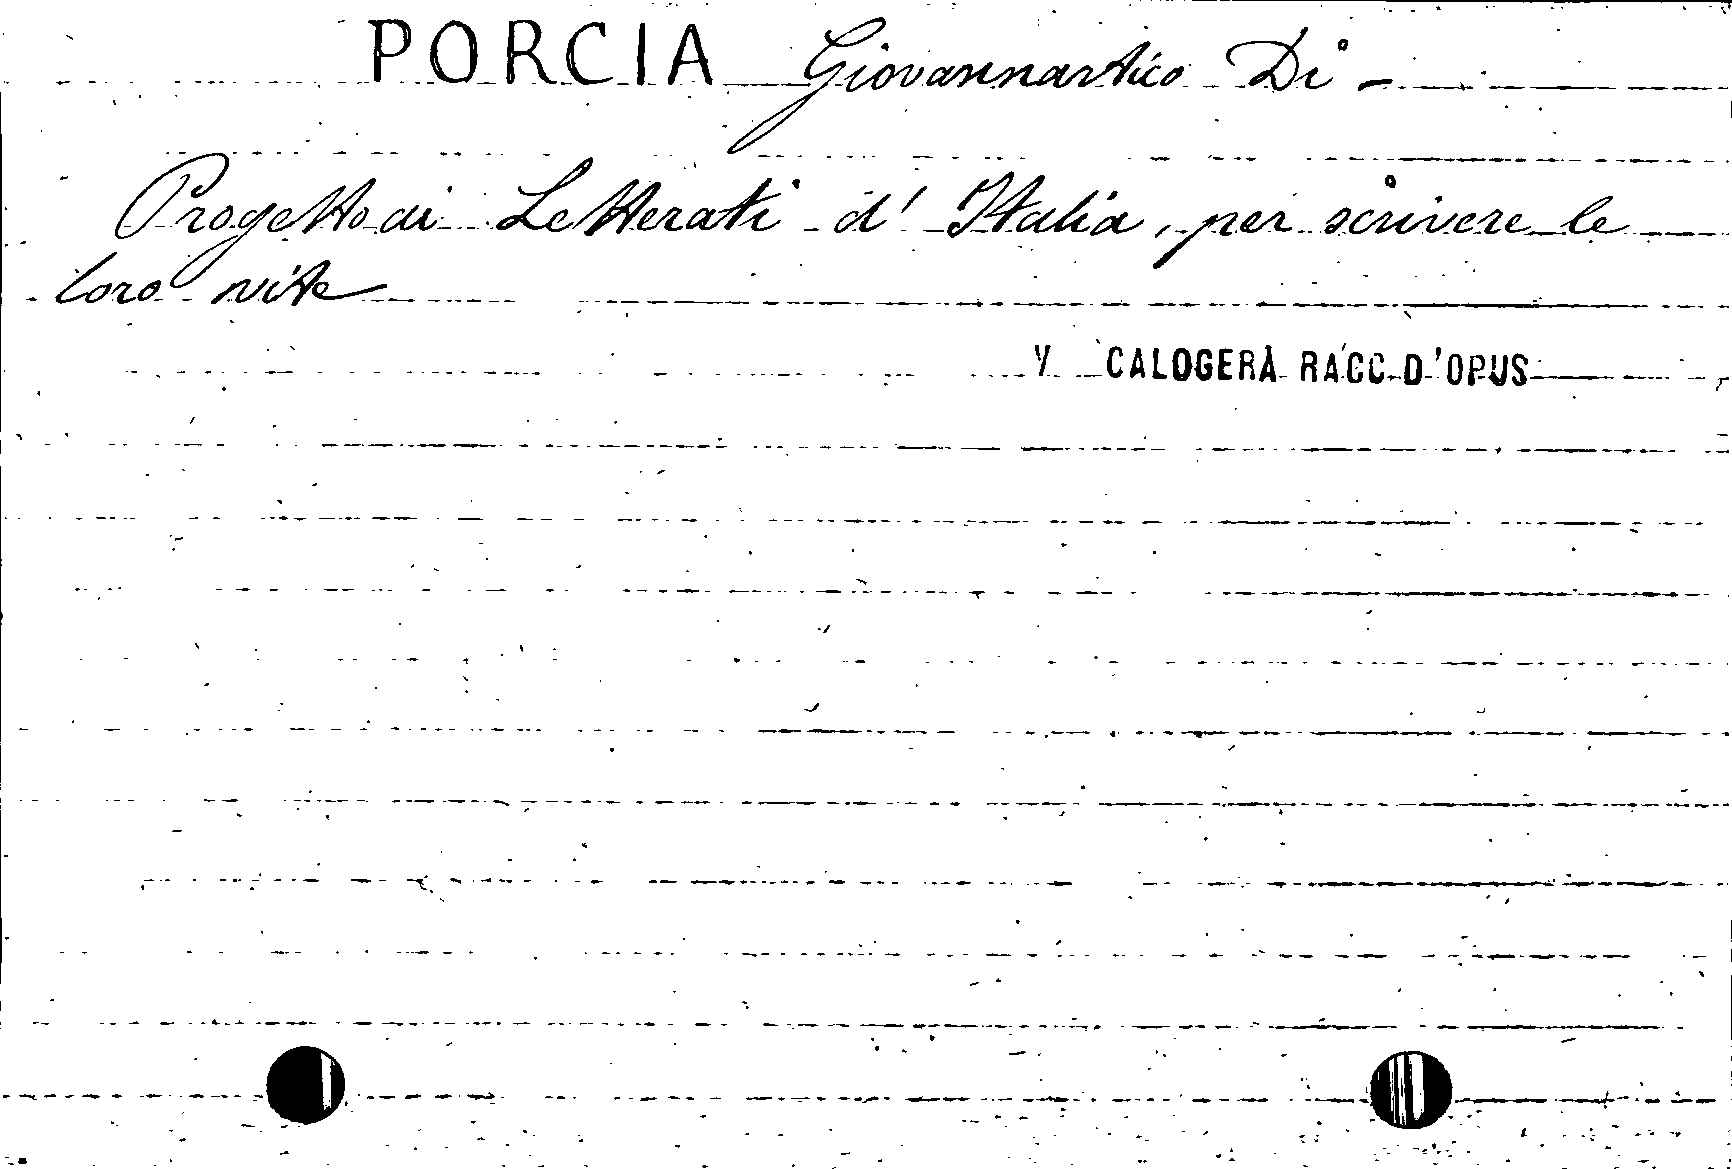 PORCIA Giovannartico Di -
Progetto di Letterati d' Italia, per scrivere le
loro vite
V CALOGERÀ RACC. D'OPUS